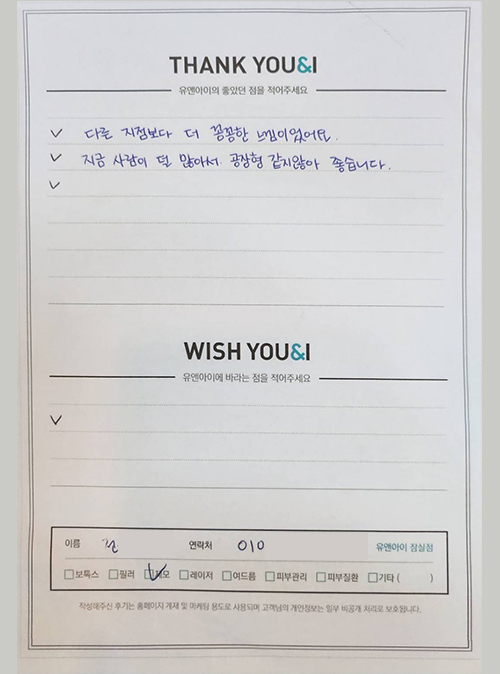 THANK YOU&I
유앤아이의 좋았던 점을 적어주세요
다른 지점보다 더 꼼꼼한 느낌이었어요.
지금 사람이 덜 많아서 공장형 같지않아 좋습니다.
WISH YOU&I
유앤아이에 바라는 점을 적어주세요
이름 전 연락처 010 유앤아이 잠실점
보톡스 필러 제모 레이저 여드름 피부관리 피부질환 기타 ( )
작성해주신 후기는 홈페이지 게재 및 마케팅 용도로 사용되며 고객님의 개인정보는 일부 비공개 처리로 보호됩니다.